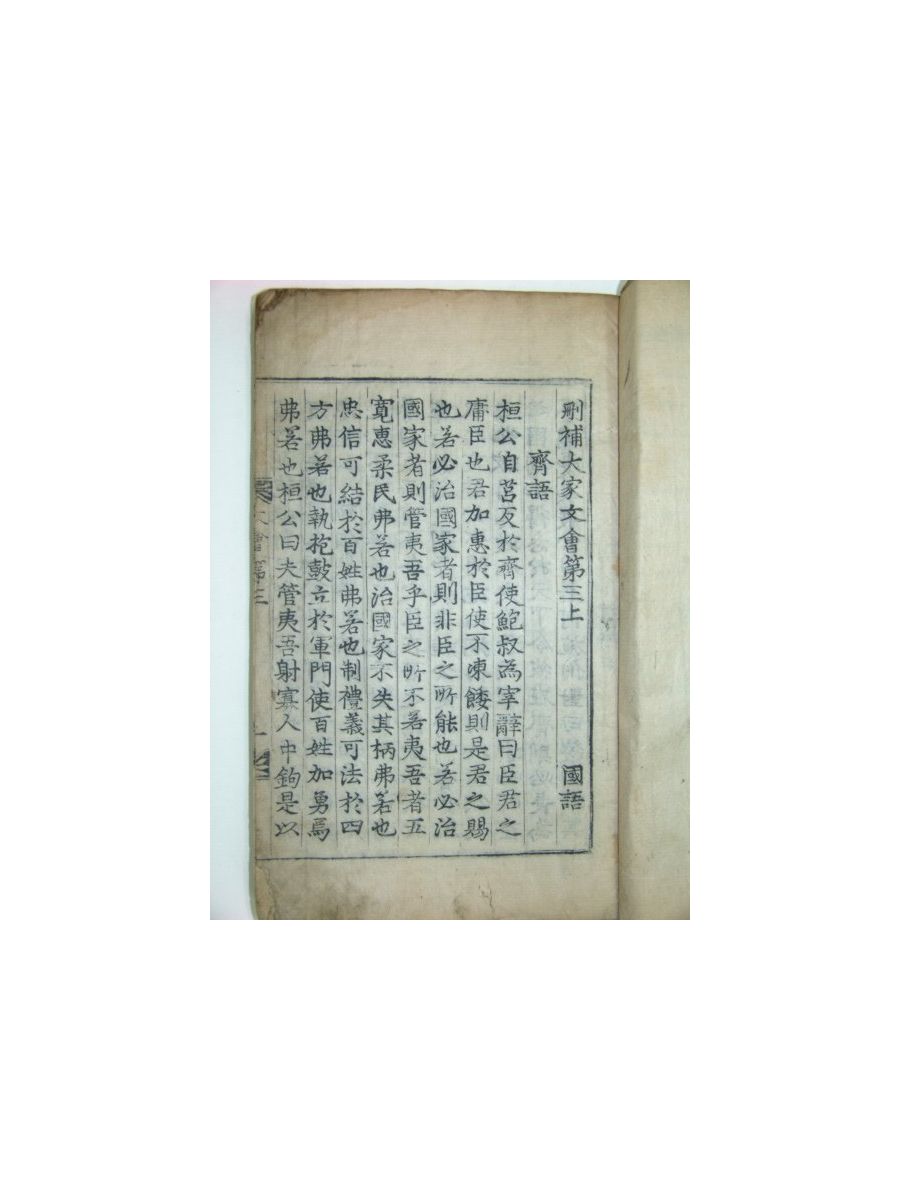 刪補大家文會第三上 國語
齊語
桓公自莒反於齊使鮑叔為宰辭曰臣君之
庸臣也君加惠於臣使不凍餒則是君之賜
也若必治國家者則非臣之所能也若必治
國家者則管夷吾乎臣之所不若夷吾者五
寬惠柔民弗若也治國家不失其柄弗若也
忠信可結於百姓弗若也制禮義可法於四
方弗若也執枹鼓立於軍門使百姓加勇焉
弗若也桓公曰夫管夷吾射寡人中鉤是以